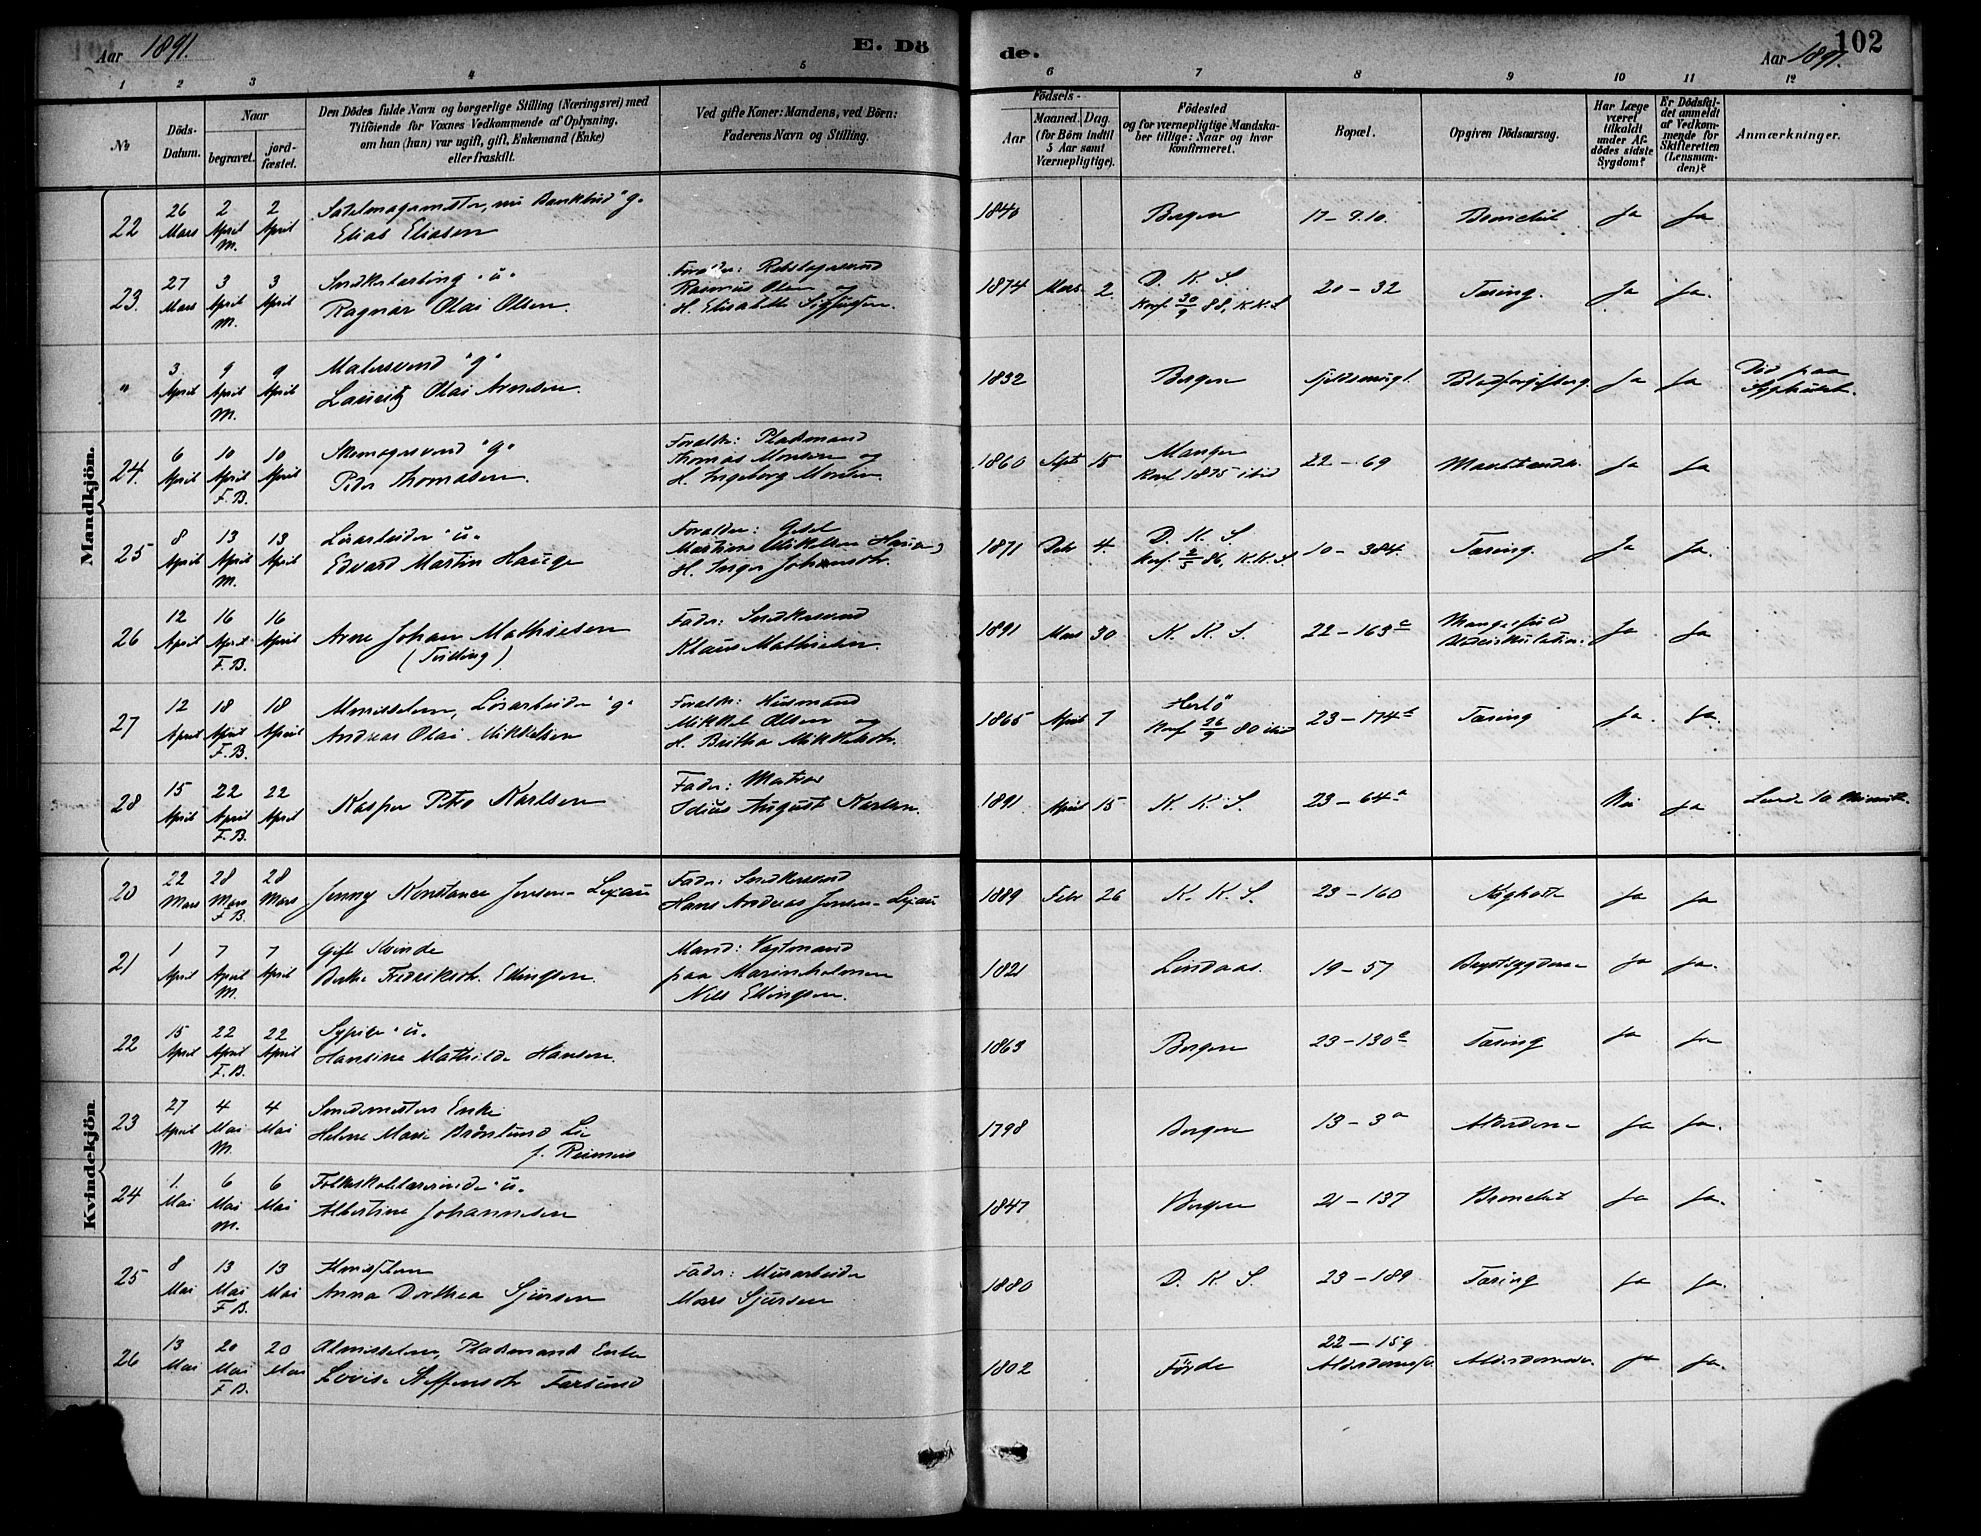 Aar 1891.
E. Dö
de.
Aar 1891.
102
1 2 3 4 5 6 7 8 9 10 11 12
No
Döds-
Datum.
Naar
begravet.
jord-
fæstet.
Den Dödes fulde Navn og borgerlige Stilling (Næringsvei) med
Tilföiende for Voxnes Vedkommende af Oplysning,
om han (hun) var ugift, gift, Enkemand (Enke)
eller fraskilt.
Ved gifte Koner: Mandens, ved Börn:
Faderens Navn og Stilling.
Födsels-
Aar
Maaned. Dag.
(for Börn indtil
5 Aar samt
Værnepligtige).
Födested
og for værnepligtige Mandska-
ber tillige: Naar og hvor
konfirmeret.
Bopæl.
Opgiven Dödsaarsag.
Har Læge
været
tilkaldt
under Af-
dödes sidste
Sygdom?
Er Dödsfal-
det anmeldt
af Vedkom-
mende for
Skifteretten
(Lensman-
den)?
Anmærkninger.
Mandkjön.
22 26 Mars 2 April M. 2 April
Sadelmagermester, nu Bankbud "g"
Elias Eliasen
1840 Bergen 17-9.10. Bronchit Ja Ja
23. 27 Mars 3 April M. 3 April
Snedkerlærling "u"
Ragnar Olai Olsen.
Rasmus Olsen og
H. Elisabeth
1874 Mars 2 D. K. S.
Konf. 30/9 88, K.K.S.
20-32 Tæring. Ja Ja.
" 3 April 9 April M. 9 April
Malersvend "g"
Lauritz Olai Arnesen.
1832 Bergen Blodforgiftning. Ja Ja
Död paa
Sygehuset.
24. 6 April 10 April F.B. 10 April
Skomagersvend "g"
Peder Thomasen.
Foraldre: Pladsmand
Thomas Monsen og
H. Ingeborg
1860 Sept 15 Manger
Konf 1875 ibid
22-69 Ja Ja
25 8 April 13 April M. 13 April
Lösarbeider "u"
Edvard Martin Hauge
Foraldre:
H. Inger
1871 4. D. K. S.
Konf. 86, K.K.S.
10-384. Tæring. Ja Ja.
26 12 April 16 April F.B. 16 April
Arne Johan Mathiesen
(Tvilling)
Fader: Snedkersvend
Klaus Mathiesen.
1891 Mars 30 K. K. S. 22-163c
Mangelfuld
Blodcirkulation. Ja Ja
27 12 April 18 April F.B. 18 April
Almisselem, Lösarbeider "g"
Andreas Olai Mikkelsen
Foraldre: Husmand
Mikkel Olsen og
H. Britha Mikkelsdtr.
1865 April 7 Herlö
Konf 26/9 80 ibid
23-174b Tæring Ja. Ja.
28 15 April 22 April F.B. 22 April
Kasper Petro Karlsen
Fader: Matros
August Karlsen.
1891 April 15 K. K. S. 23-64a Nei Ja Levede 10 Minuter.
Kvindekjön
20 22 Mars 28 Mars F.B. 28 Mars
Jenny Konstance Jensen-Lexau
Fader: Snedkersvend
Hans Andreas Jensen-Lexau
1889 Febr 26 K. K. S. 23-160 Kighoste Ja Ja
21 1 April 7 April M. 7 April
Gift Kvinde
Berthe Fredriksdtr. Ellingsen.
Mand: Vagtmand
paa Marineholmen
Nils Ellingsen.
1821 Lindaas. 19-57 Brystsygdom Ja Ja.
22 15 April 22 April F.B. 22 April
Sypige "u"
Hansine Mathilde Hansen.
1863 Bergen 23-130c Tæring Ja Ja
23 27 April 4 Mai M. 4 Mai
Enke
Helene Marie Brönlund Lie
f. Reimers
1798 Bergen 13-3a Alderdom Ja Ja.
24 1. Mai 6 Mai M. 6 Mai
Folkeskolelærerinde "u"
Albertine Johannesen
1847 Bergen 21-137 Bronchit Ja Ja.
25 8 Mai 13 Mai F.B. 13 Mai
Almisselem
Anna Dorthea Sjursen
Fader: Murarbeider
Mons Sjursen
1880 D. K. S. 23-189 Tæring Ja Ja.
26 13 Mai 20 Mai F.B. 20 Mai
Almisselem, Pladsmands Enke
Lovise Steffensdtr Farsund
1802 Förde 22-159
Ja Ja.